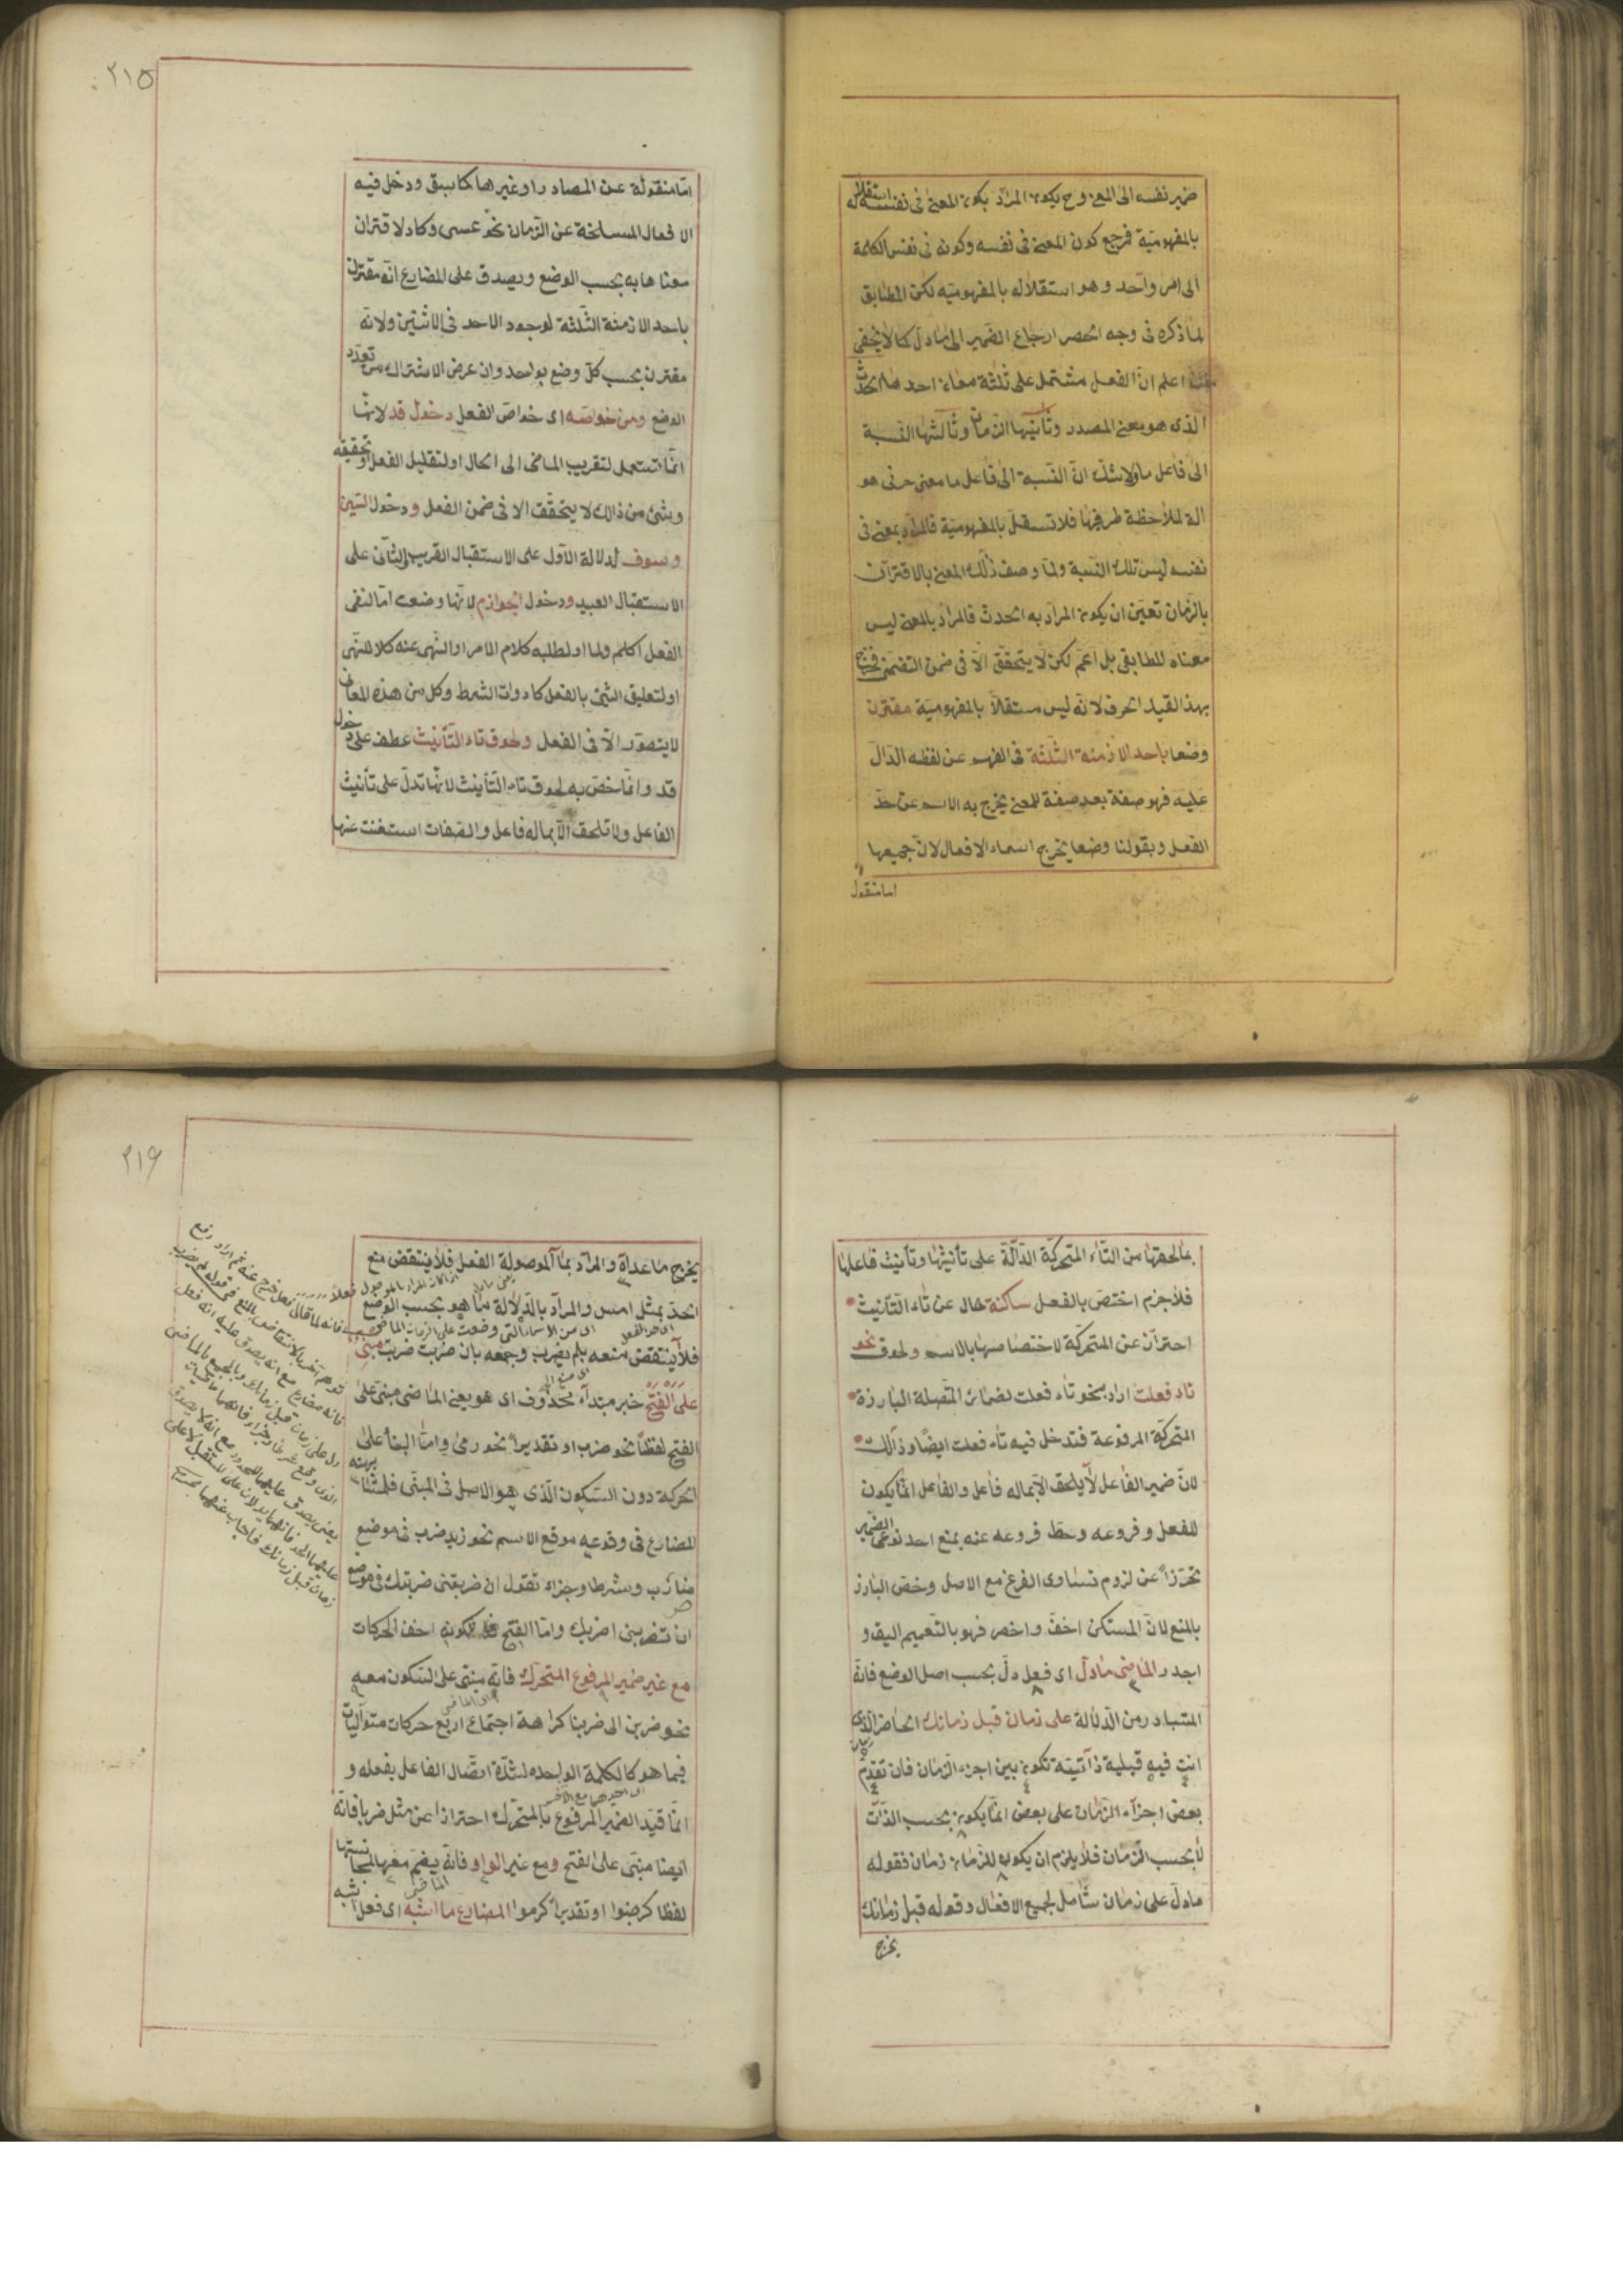 ضمير نفسه الى المعنى وح يكون المراد بكون المعنى فى نفسه استقلاله
بالمفهومية فمرجع كون المعنى فى نفسه وكونه فى نفس الكلمة
الى امر واحد وهو استقلاله بالمفهومية لكن المطابق
لما ذكره فى وجه الحصر ارجاع الضمير الى ما دل كما لا يخفى
اعلم ان الفعل مشتمل على ثلثة معان احدها الحدث
الذى هو معنى المصدر وثانيها الزمان وثالثها النسبة
الى فاعل ما ولا شك ان النسبة الى فاعل ما معنى حرفى هو
الة لملاحظة طرفيها فلا تستقل بالمفهومية فالمراد بمعنى فى
نفسه ليس تلك النسبة ولما وصف ذلك المعنى بالاقتران
بالزمان تعين ان يكون المراد به الحدث فالمراد بالمعنى ليس
معناه المطابقى بل اعم لكن لا يتحقق الا فى ضمن التضمنى فخرج
بهذا القيد الحرف لانه ليس مستقلا بالمفهومية مقترن
وضعا باحد الازمنة الثلثة فى الفهم عن لفظه الدال
عليه فهو صفة بعد صفة للمعنى يخرج به الاسم عن حد
الفعل وبقولنا وضعا يخرج اسماء الافعال لان جميعها
اما منقول
٢١٥
اما منقولة عن المصادر او غيرها كما سبق ودخل فيه
الافعال المنسلخة عن الزمان نحو عسى وكاد لاقتران
معناها به بحسب الوضع ويصدق على المضارع انه مقترن
باحد الازمنة الثلثة لوجود الاحد فى الاثنين ولانه
مقترن بحسب كل وضع بواحد وان عرض الاشتراك من تعدد
الوضع ومن خواصه اى خواص الفعل دخول قد لانها
انما تستعمل لتقريب الماضى الى الحال او لتقليل الفعل او تحقيقه
وشئ من ذلك لا يتحقق الا فى ضمن الفعل ودخول السين
وسوف لدلالة الاول على الاستقبال القريب والثانى على
الاستقبال البعيد ودخول الجوازم لانها وضعت اما لنفى
الفعل كلم ولما او لطلبه كلام الامر او النهى عنه كلا للنهى
او لتعليق الشئ بالفعل كادوات الشرط وكل من هذه المعانى
لا يتصور الا فى الفعل ولحوق تاء التأنيث عطف على دخول
قد وانما خص به لحوق تاء التأنيث لانها تدل على تأنيث
الفاعل ولا تلحق الا بما له فاعل والصفات استغنت عنها
بما لحقها من التاء المتحركة الدالة على تأنيثها وتأنيث فاعلها
فلاجرم اختص بالفعل ساكنة حال عن تاء التأنيث
احتراز عن المتحركة لاختصاصها بالاسم ولحوق نحو
تاء فعلت اراد بنحو تاء فعلت لضمائر المتصلة البارزة
المتحركة المرفوعة فتدخل فيه تاء فعلت ايضا وذالك
لان ضمير الفاعل لا يلحق الا بما له فاعل والفاعل انما يكون
للفعل وفروعه وحط فروعه عنه بمنع احد نوعى الضمير
تحرزا عن لزوم تساوى الفرع مع الاصل وخص البارز
بالمنع لان المستكن اخف واخصر فهو بالتعميم اليق و
اجدر الماضى ما دل اى فعل دل بحسب اصل الوضع فانه
المتبادر من الدلالة على زمان قبل زمانك الحاضر الذى
انت فيه قبلية ذاتية تكون بين اجزاء الزمان فان تقدم
بعض اجزاء الزمان على بعض انما يكون بحسب الذات
لا بحسب الزمان فلا يلزم ان يكون للزمان زمان فقوله
ما دل على زمان شامل لجميع الافعال وقوله قبل زمانك
يخرج
٢١٦
يخرج ما عداه والمراد بما الموصولة الفعل فلا ينتقض منع
الحد بمثل امس والمراد بالدلالة ما هو بحسب الوضع
فلا ينتقض منعه بلم يضرب وجمعه بان ضربت ضربت مبنى
على الفتح خبر مبتداء محذوف اى هو يعنى الماضى مبنى على
الفتح لفظا نحو ضرب او تقديرا نحو رمى واما البناء على
الحركة دون السكون الذى هو الاصل فى المبنى فلمشابهته
المضارع فى وقوعه موقع الاسم نحو زيد ضرب فى موضع
ضارب وشرطا وجزاء تقول ان ضربتنى ضربتك فى موضع
ان تضربنى اضربك واما الفتح فلكونه اخف الحركات
مع غير ضمير المرفوع المتحرك فانه مبنى على السكون معه
نحو ضربن الى ضربنا كراهة اجتماع اربع حركات متواليات
فيما هو كالكلمة الواحده لشدة اتصال الفاعل بفعله و
انما قيد الضمير المرفوع بالمتحرك احترازا عن مثل ضربا فانه
ايضا مبنى على الفتح ومع غير الواو فانه يضم معها لمجانستها
لفظا كضربوا او تقديرا كرموا المضارع ما اشبه اى فعل اشبه